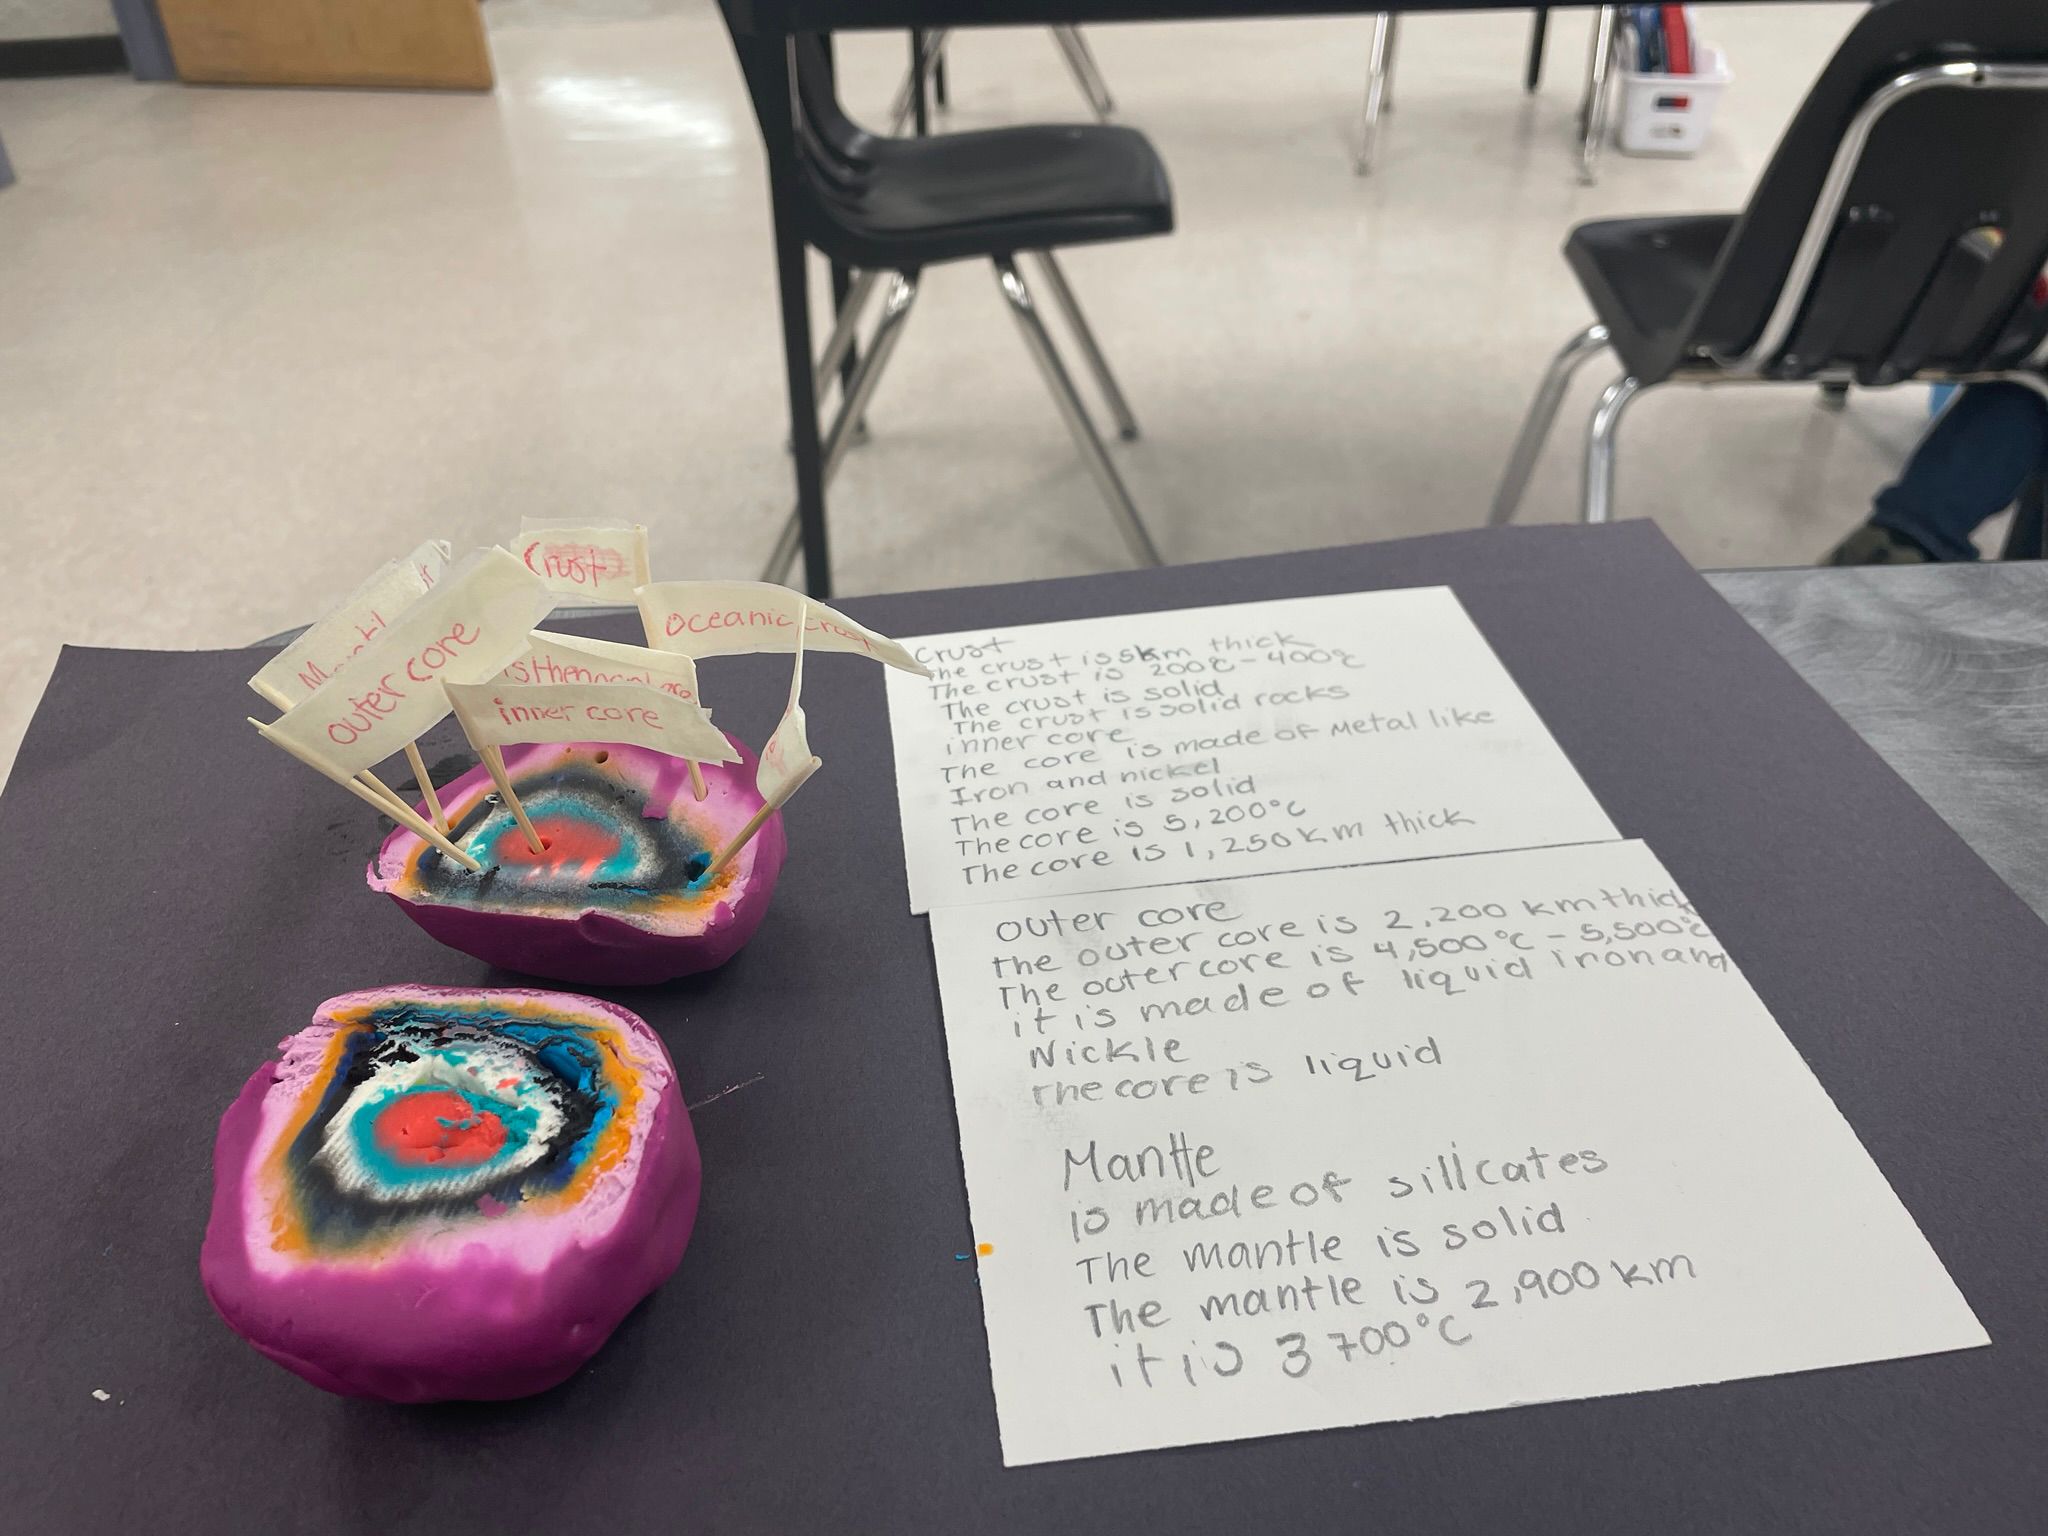 Crust
oceanic crust
outer core
inner core
Crust
The crust is 5km thick
The crust is 200°C - 400°C
The crust is solid
The crust is solid rocks
inner core
The core is made of Metal like
Iron and nickel
The core is solid
The core is 5,200°C
The core is 1,250km thick
outer core
the outer core is 2,200 km thick
The outer core is 4,500°C - 5,500°C
it is made of liquid iron and
Nickle
The core is liquid
Mantle
is made of sillcates
The mantle is solid
The mantle is 2,900 km
it is 3700°C